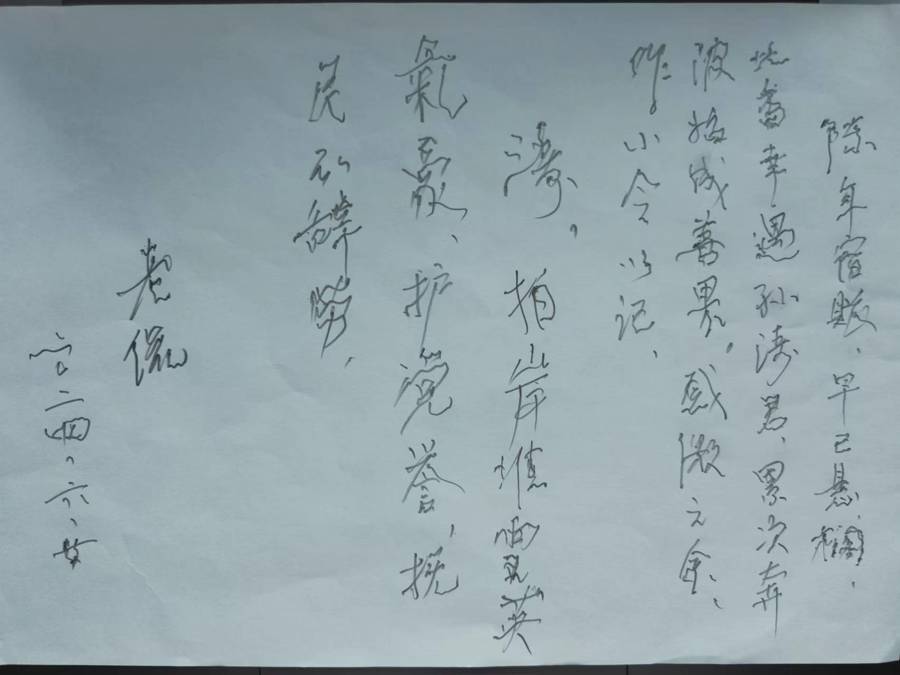 陈年宿账、早已悬搁、
此番幸遇孙涛君、累次奔
波始成善果。感激之余、
作小令以记、
涛。拍岸堆雪现英
氣豪、护党誉，挽
民不辞勞、
老侃
二〇二四、六、廿